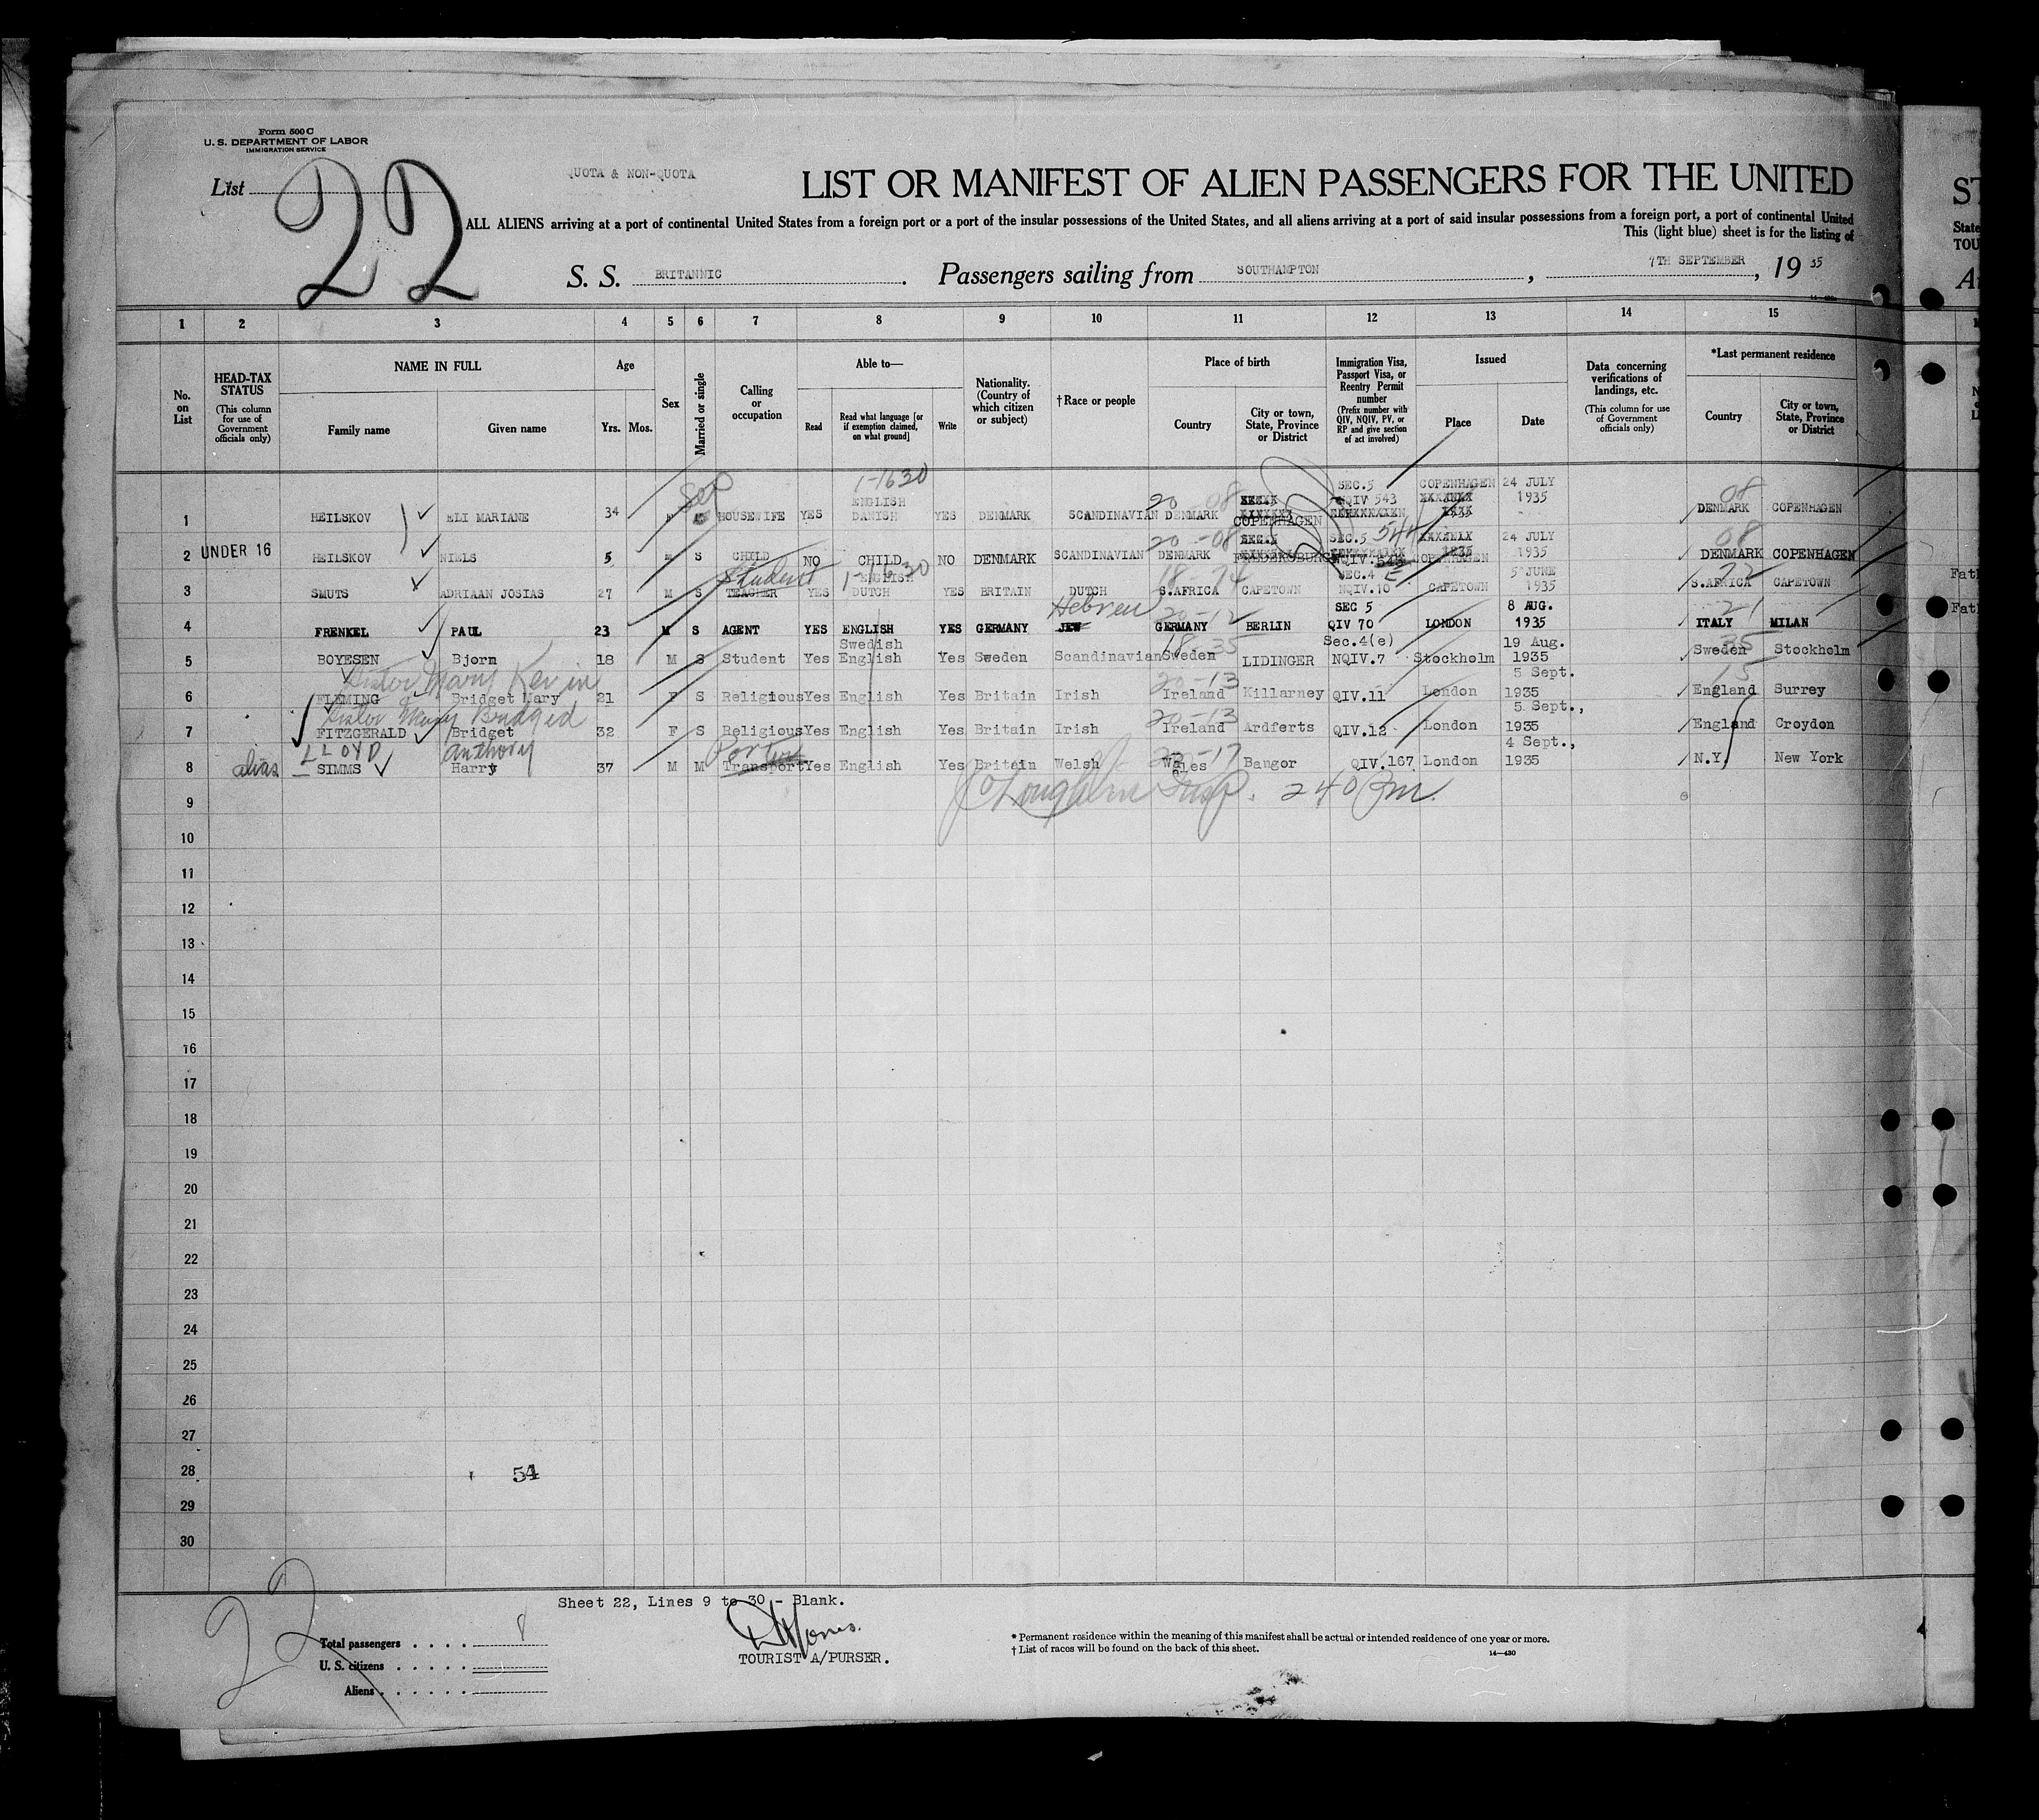 Form 500 C
U. S. DEPARTMENT OF LABOR
IMMIGRATION SERVICE
List 22
QUOTA & NON-QUOTA
LIST OR MANIFEST OF ALIEN PASSENGERS FOR THE UNITED
ALL ALIENS arriving at a port of continental United States from a foreign port or a port of the insular possessions of the United States, and all aliens arriving at a port of said insular possessions from a foreign port, a port of continental United
This (light blue) sheet is for the listing of
S. S. BRITANNIC. Passengers sailing from SOUTHAMPTON, 7TH SEPTEMBER, 1935
1 2 3 4 5 6 7 8 9 10 11 12 13 14 15
No. on List
HEAD-TAX STATUS (This column for use of Government officials only)
NAME IN FULL
Family name Given name
Age
Yrs. Mos.
Sex
Married or single
Calling or occupation
Able to—
Read
Read what language [or if exemption claimed, on what ground]
Write
Nationality. (Country of which citizen or subject)
† Race or people
Place of birth
Country
City or town, State, Province or District
Immigration Visa, Passport Visa, or Reentry Permit number (Prefix number with QIV, NQIV, PV, or RP and give section of act involved)
Issued
Place Date
Data concerning verifications of landings, etc. (This column for use of Government officials only)
*Last permanent residence
Country
City or town, State, Province or District
1-1630
Sep ENGLISH 20 08 SEC.5 COPENHAGEN 24 JULY 08
1 HEILSKOV ELI MARIANE 34 F HOUSEWIFE YES DANISH YES DENMARK SCANDINAVIAN DENMARK COPENHAGEN NQIV 543 1935 DENMARK COPENHAGEN
20-08 SEC.5 544 24 JULY 08
2 UNDER 16 HEILSKOV NIELS 5 M S CHILD NO CHILD NO DENMARK SCANDINAVIAN DENMARK FREDERGBURG NQIV. COPENHAGEN 1935 DENMARK COPENHAGEN
Student 1-1630 ENGLISH 18-74 SEC.4 E 5 JUNE 72
3 SMUTS ADRIAAN JOSIAS 27 M S TEACHER YES DUTCH YES BRITAIN DUTCH S.AFRICA CAPETOWN NQIV.10 CAPETOWN 1935 S.AFRICA CAPETOWN
Hebrew 20-12 SEC 5 8 AUG. 21
4 FRENKEL PAUL 23 M S AGENT YES ENGLISH YES GERMANY JEW GERMANY BERLIN QIV 70 LONDON 1935 ITALY MILAN
Swedish 18-35 Sec.4(e) 19 Aug. 35
5 BOYESEN Bjorn 18 M S Student Yes English Yes Sweden Scandinavian Sweden LIDINGER NQIV.7 Stockholm 1935 Sweden Stockholm
Sister Mary Kevin 20-13 5 Sept. 15
6 FLEMING Bridget Mary 21 F S Religious Yes English Yes Britain Irish Ireland Killarney QIV.11 London 1935 England Surrey
Sister Mary Bridged 20-13 5 Sept.,
7 FITZGERALD Bridget 32 F S Religious Yes English Yes Britain Irish Ireland Ardferts QIV.12 London 1935 England Croydon
LLOYD Anthony Porter 20-17 4 Sept.,
8 alias SIMMS Harry 37 M M Transport Yes English Yes Britain Welsh Wales Bangor QIV.167 London 1935 N.Y. New York
9 Insp. 240 Pm.
10
11
12
13
14
15
16
17
18
19
20
21
22
23
24
25
26
27
28 54
29
30
22
Sheet 22, Lines 9 to 30 - Blank.
Total passengers . . . . 8
U. S. citizens . . . . .
Aliens . . . . . .
TOURIST A/PURSER.
* Permanent residence within the meaning of this manifest shall be actual or intended residence of one year or more.
† List of races will be found on the back of this sheet.
14—430